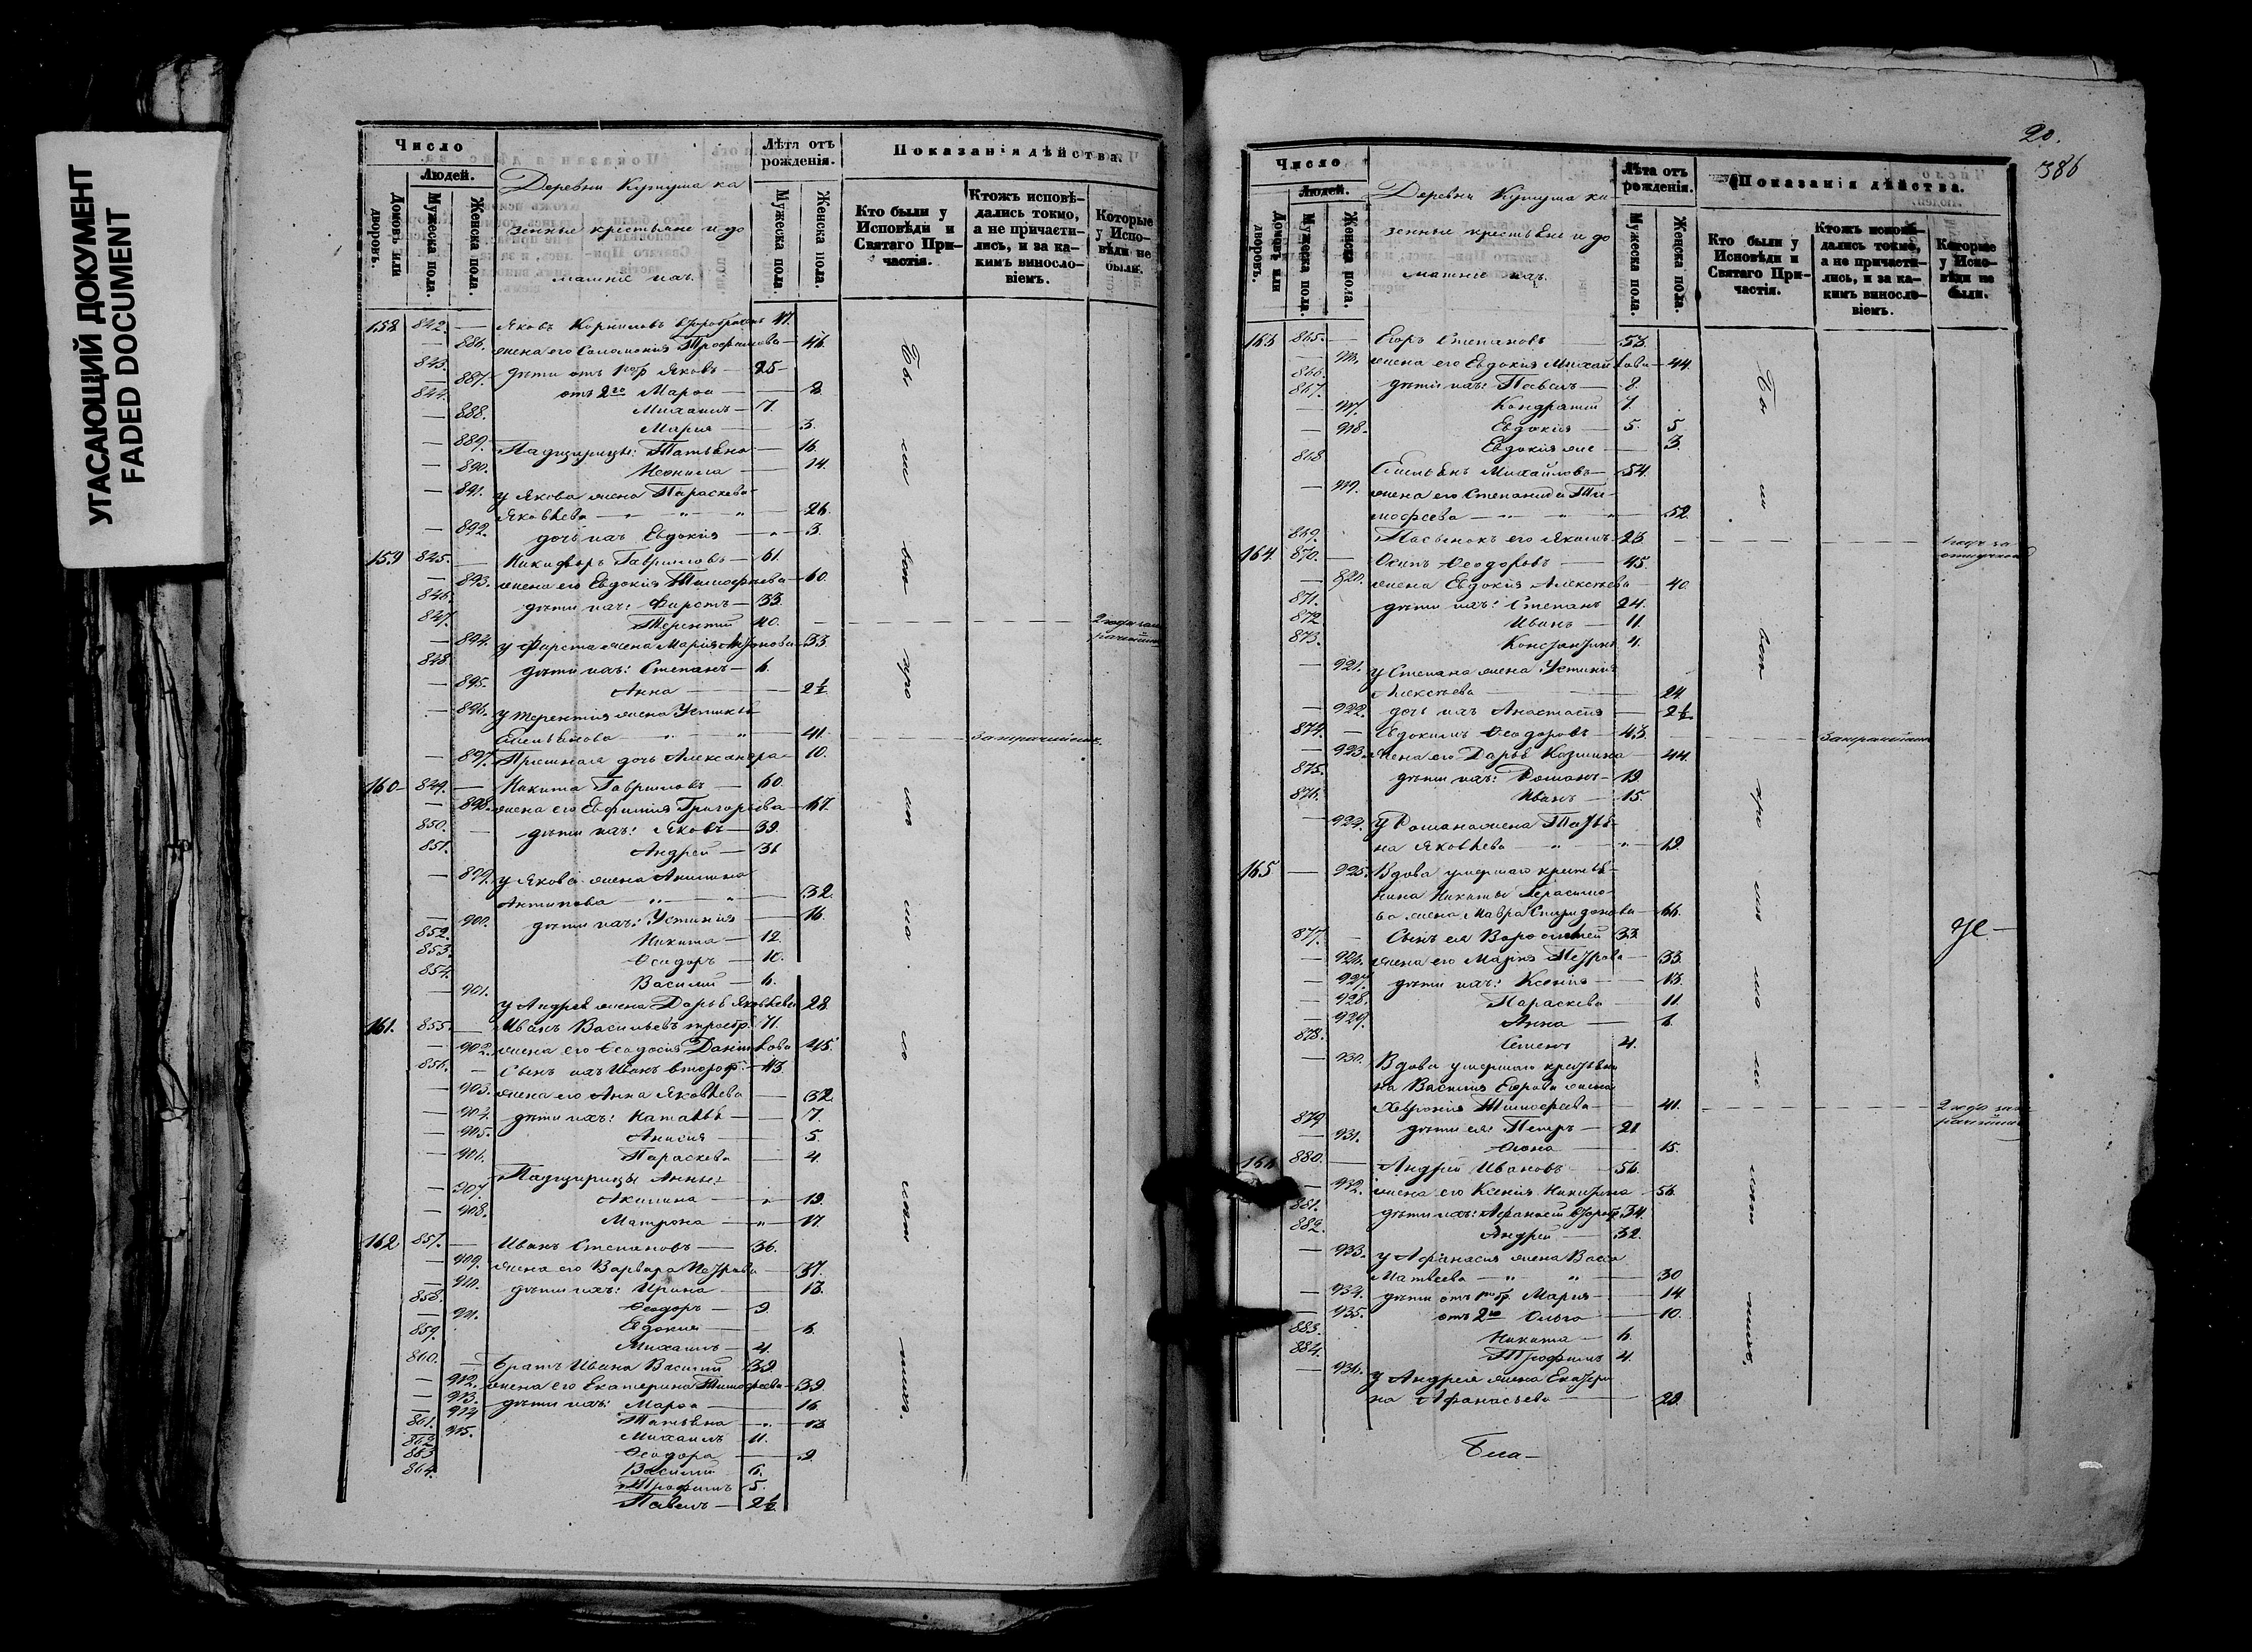 УГАСАЮЩИЙ ДОКУМЕНТ
FADED DOCUMENT
Число
Людей.
Домовъ или дворовъ.
Мужеска пола.
Женска пола.
Деревни Кутуша ка
зенные крестьяне и до
машніе ихъ.
Лѣта отъ рожденія.
Мужеска пола.
Женска пола.
Показанія дѣйства.
Кто были у Исповѣди и Святаго Причастія.
Ктожъ исповѣдались токмо, а не причастились, и за какимъ винословіемъ.
Которые у Исповѣди не были.
158 842. — Яковъ Корниловъ 47.
— 886. жена его Соломонія Трофимова — 46.
843. дѣти отъ Яковъ — 25
— 887. отъ 2го Марѳа — 8.
844. Михаилъ — 7.
— 888. Марія — 3.
— 889. Падчерицы: Татьяна — 16.
— 890. Неонила — 14.
— 891. у Якова жена Параскева
Яковлева — 26.
— 892. дочь ихъ Евдокія — 3.
159 845. — Никифоръ Гавриловъ — 61.
— 893. жена его Евдокія Тимофеева — 60.
846. дѣти ихъ: Фирстъ — 33.
847. Терентій 40.
— 894. у Фирста жена Марія — 33.
848. дѣти ихъ: Степанъ — 6.
— 895. Анна — 2½
— 896. у Терентія жена Устинія
Емельянова — 41.
— 897. дочь Александра — 10.
160 849. — Никита Гавриловъ — 60.
— 898. жена его Евфимія Григорьева — 67.
850. — дѣти ихъ: Яковъ — 39.
851. Андрей — 31.
— 899. у Якова жена Акилина
Антипова — 32.
— 900. дѣти ихъ: Устинія — 16.
852. Никита — 12.
853. Ѳеодоръ — 10.
854. Василій — 6.
— 901. у Андрея жена Дарья Яковлева 28.
161. 855. — Иванъ Васильевъ 71.
— 902. жена его Ѳеодосія Данилова 45.
856. — Сынъ ихъ Иванъ — 43.
— 903. жена его Анна Яковлева — 32.
— 904. дѣти ихъ: Наталья — 7.
— 905. Анисія — 5.
— 906. Параскева — 4.
Падчерицы Анны:
— 907. Акилина — 19.
— 908. Матрона — 17.
162 857. — Иванъ Степановъ — 36.
— 909. жена его Варвара Петрова — 37.
— 910. дѣти ихъ: Ирина — 13.
858. Ѳеодоръ — 9.
— 911. Евдокія — 6.
859. Михаилъ — 4.
860. — братъ Ивана Василій 39
— 912. жена его Екатерина Тимофеева — 39
— 913. дѣти ихъ: Марѳа — 16.
— 914. Татьяна — 13
861. Михаилъ 11.
915. Ѳеодора — 9.
862. Василій 6.
863. Трофимъ 5.
864. Павелъ — 2½
20.
386
Число
Людей.
Домовъ или дворовъ.
Мужеска пола.
Женска пола.
Деревни Кутуша ка-
зенные крестьяне и до
машніе ихъ.
Лѣта отъ рожденія.
Мужеска пола.
Женска пола.
Показанія дѣйства.
Кто были у Исповѣди и Святаго Причастія.
Ктожъ исповѣдались токмо, а не причастились, и за какимъ винословіемъ.
Которые у Исповѣди не были.
163 865. — Егоръ Степановъ — 53.
— 916. жена его Евдокія Михайлова — 44.
866. дѣти ихъ: Павелъ — 8.
867. Кондратій 7.
— 917. Евдокія — 5.
— 918. Евдокія же — 3.
868. Емельянъ Михайловъ — 54.
— 919. жена его Степанида Ти-
мофеева — 52.
869. Пасынокъ его Якимъ — 23.
164. 870. — Осипъ Ѳеодоровъ — 45.
— 920. жена Евдокія Алексѣева — 40.
871. дѣти ихъ: Степанъ 24.
872. Иванъ — 11.
873. Константинъ 4.
— 921. у Степана жена Устинія
Алексѣева — 24.
— 922. дочь ихъ Анастасія — 2½
874. — Евдокимъ Ѳеодоровъ — 43.
— 923. жена его Дарья Козмина — 44.
875. дѣти ихъ: Романъ — 19.
876. Иванъ — 15.
— 924. У Романа жена Татья-
на Яковлева — 19.
165 — 925. Вдова умершаго крестья-
нина Никиты Герасимо-
ва жена Мавра Спиридонова — 66.
877. Сынъ ея Варѳоломей 33.
— 926. жена его Марія Петрова — 33.
— 927. дѣти ихъ: Ксенія — 13.
— 928. Параскева — 11.
— 929. Анна — 6.
878. Семенъ 4.
— 930. Вдова умершаго крестьяни
на Василія жена
Хевронія Тимофеева — 41.
879. дѣти ея: Петръ — 21.
— 931. 15.
880. — Андрей Ивановъ — 56.
— 932. жена его Ксенія Никитина — 56.
881. дѣти ихъ: Афанасій 34.
882. Андрей — 32.
— 933. у Афанасія жена Васса
Матвеева — 30
— 934. дѣти отъ Марія — 14.
— 935. отъ 2го Ольга — 10.
883. Никита — 6.
884. Трофимъ 4.
— 936. у Андрея жена Екатери
на Афанасьева — 29.